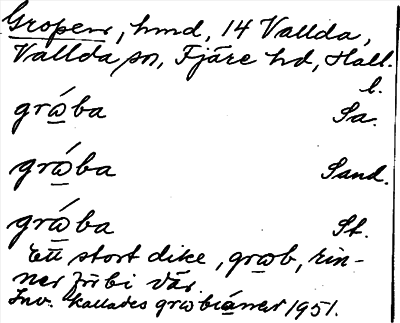 Gropen, hmd, 14 Vallda,
Vallda sn, Fjäre hd, Hall.
l.
grώ̲ba Sa.
grώ̲ba Sand.
grώ̲ba St.
Ett stort dike, grω̲b, rin-
ner förbi vår.
Inv. kallades grωbiánar 1951.